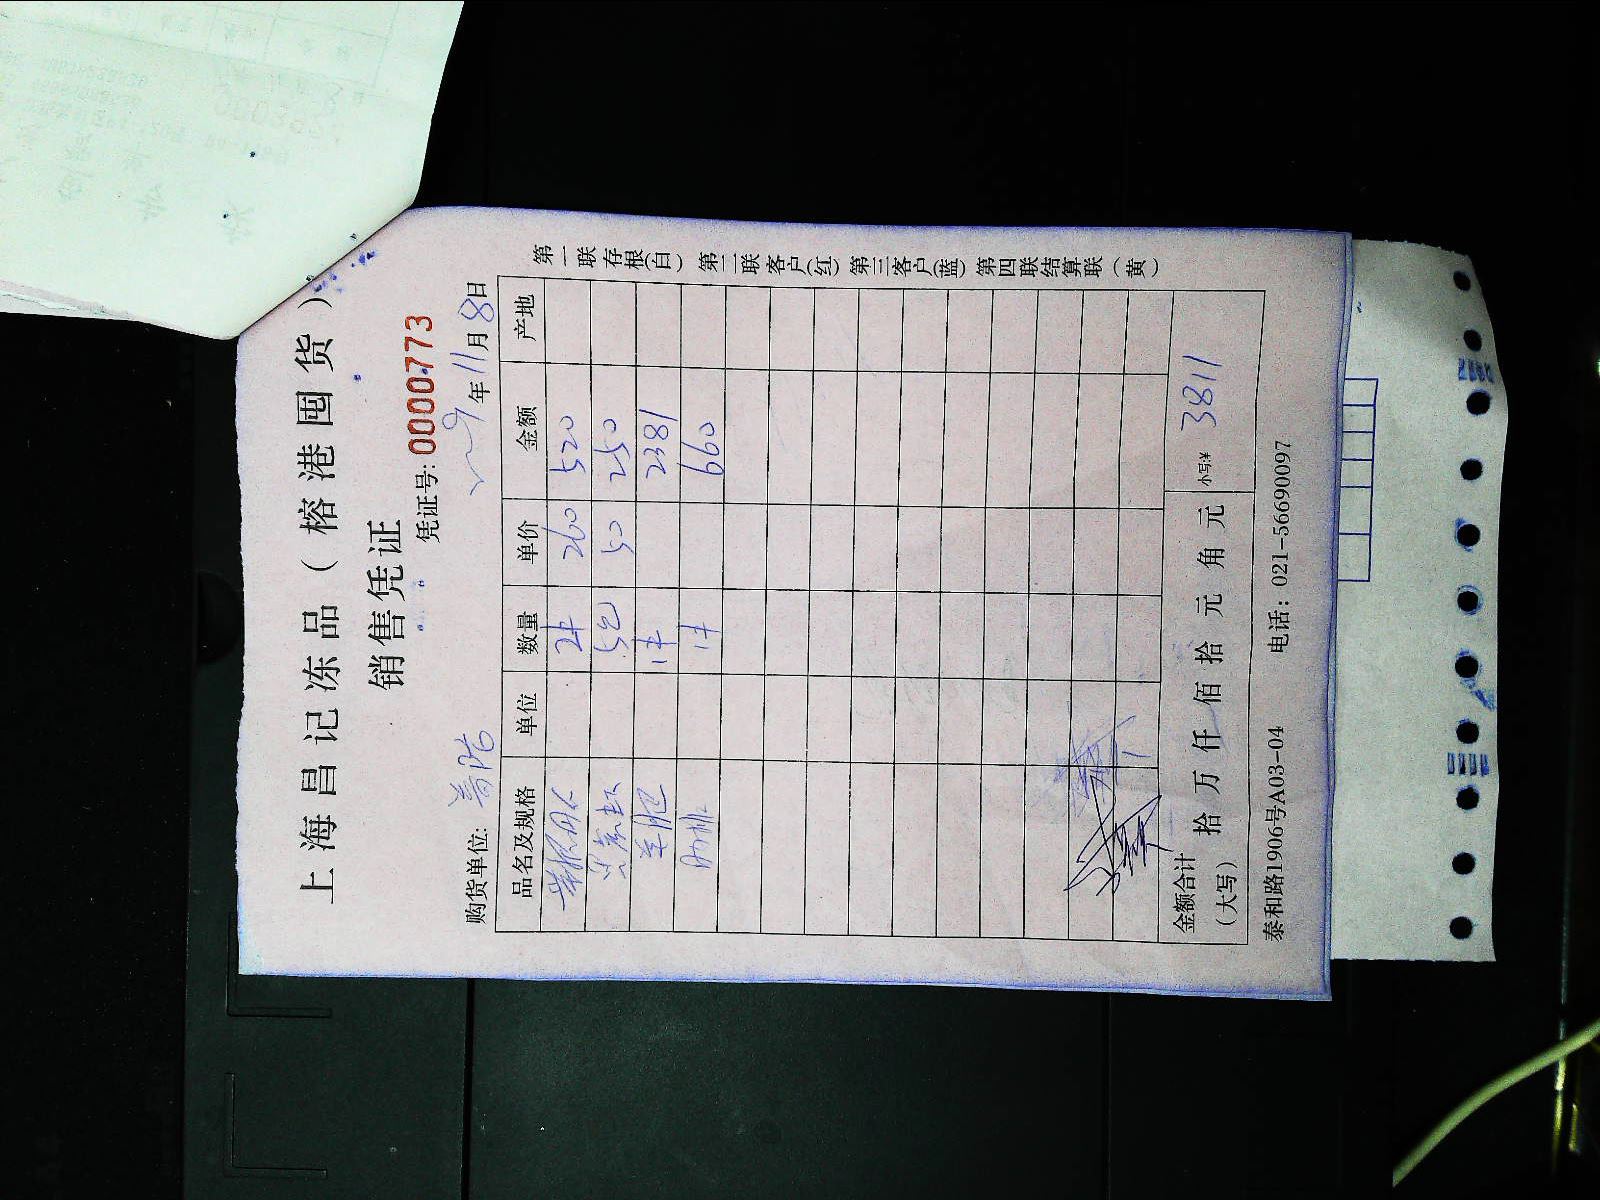 上海昌记冻品（榕港囤货）
销售凭证
凭证号: 0000773
购货单位: 年11月8日
品名及规格 单位 数量 单价 金额 产地
2件 260 520
5包 50 250
羊肥 1件 2381
1件 660
金额合计（大写） 拾 万 仟 佰 拾 元 角 元 小写:¥ 3811
泰和路1906号A03-04 电话: 021-56690097
第一联存根(白) 第二联客户(红) 第三客户(蓝) 第四联结算联(黄)